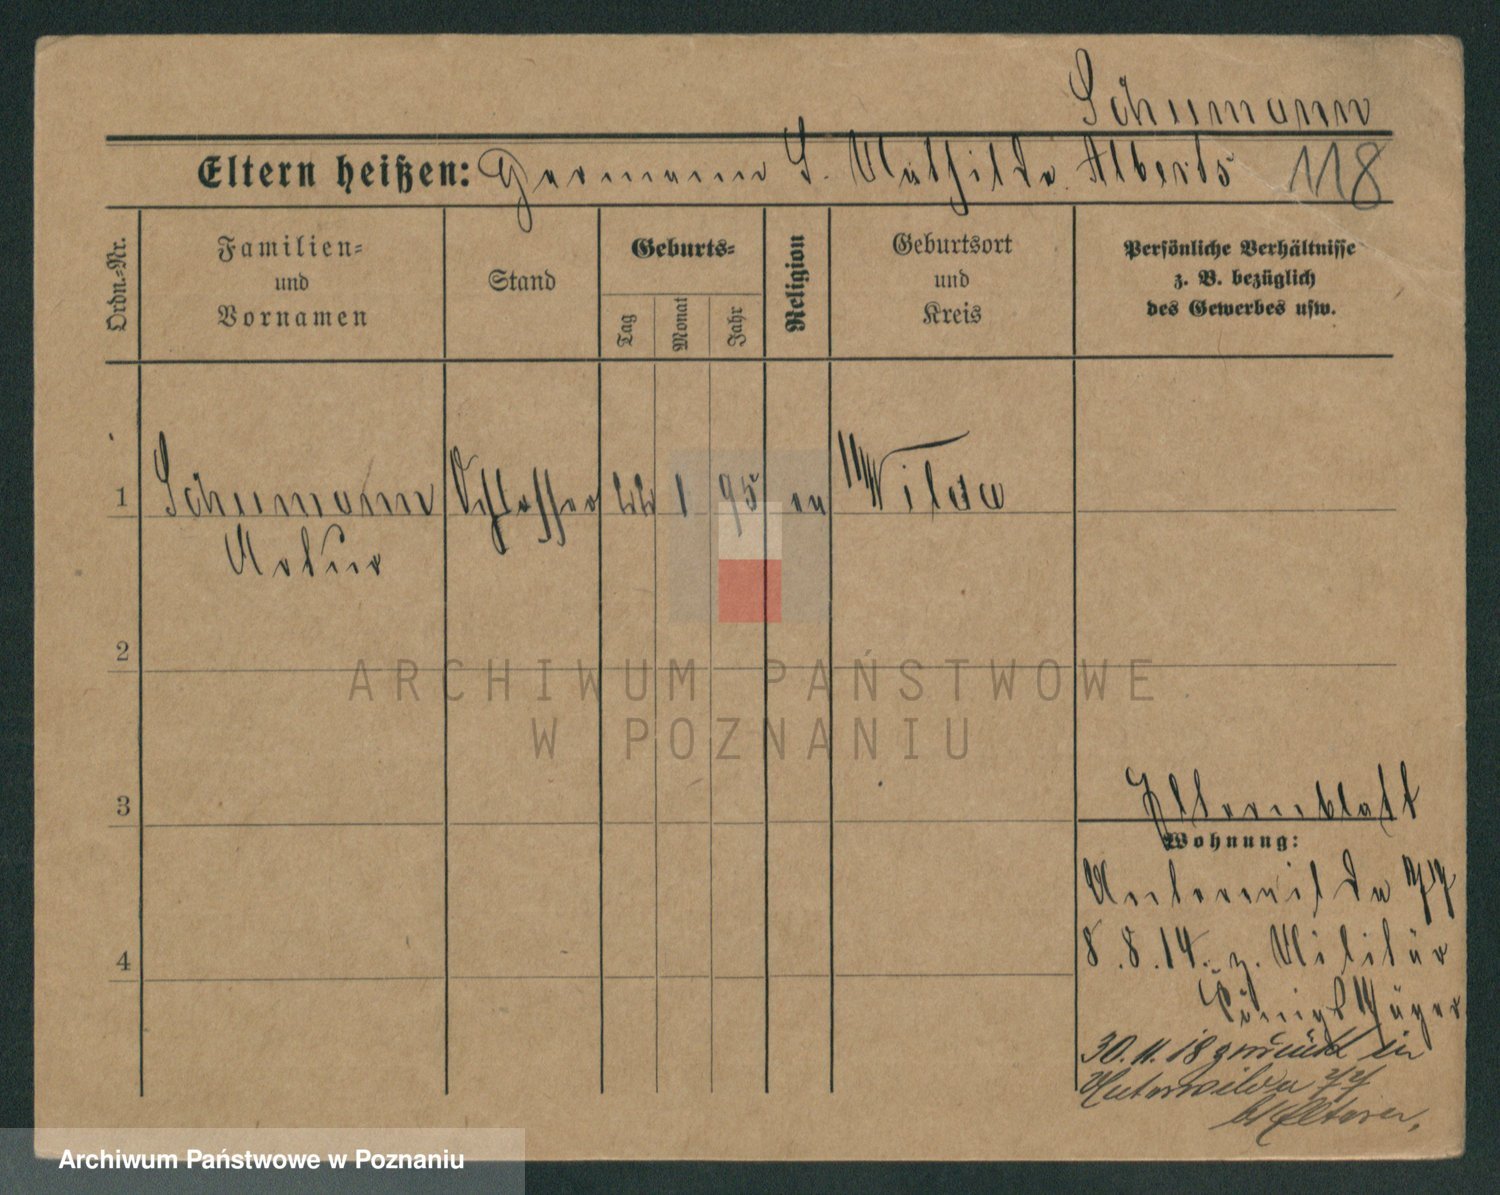 Schumann
Eltern heißen: Hermann S. Mathilde Alberts 118
Ordn.-Nr.
Familien-
und
Vornamen
Stand
Geburts-
Tag
Monat
Jahr
Religion
Geburtsort
und
Kreis
Persönliche Verhältnisse
z. B. bezüglich
des Gewerbes usw.
1 Schumann Schlosser 1 95 ev Wilda
Artur
2
3
4
Elternblatt
Wohnung:
Unterwilda 77
8.8.14. z. Militär
Königs Jäger
30.11.18 zurück in
Unterwilda 77
b/ Eltern.
ARCHIWUM PAŃSTWOWE
W POZNANIU
Archiwum Państwowe w Poznaniu